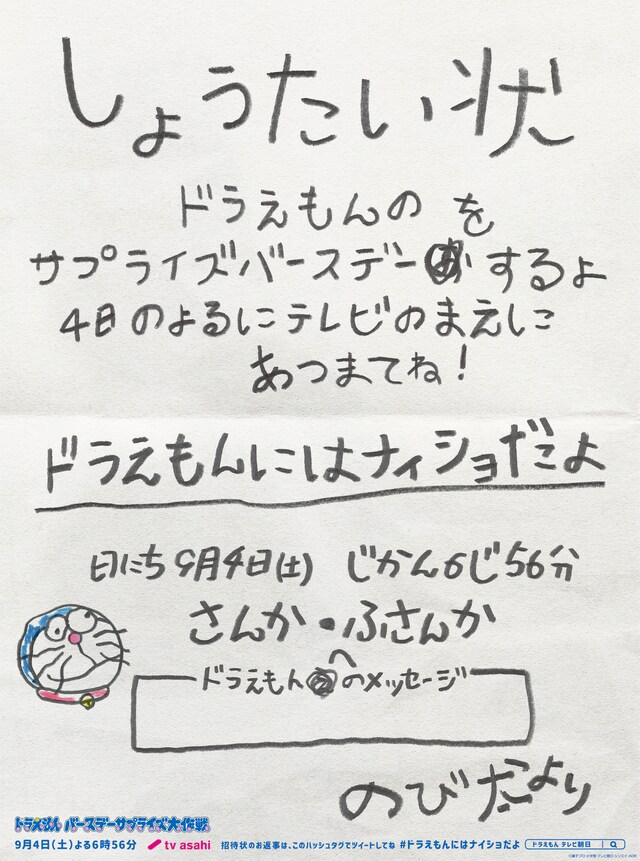 しょうたい状
ドラえもんの を
サプライズバースデーするよ
4日のよるにテレビのまえに
あつまてね!
ドラえもんにはナイショだよ
日にち 9月4日(土) じかん6じ56分
さんか・ふさんか
ドラえもんへのメッセージ
のびたより
ドラえもん バースデーサプライズ大作戦
9月4日(土)よる6時56分 tv asahi 招待状のお返事は、このハッシュタグでツイートしてね #ドラえもんにはナイショだよ ドラえもん テレビ朝日
©藤子プロ・小学館・テレビ朝日・シンエイ・ADK